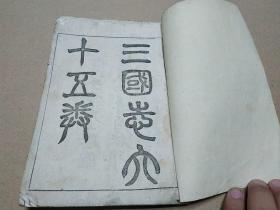 三國志六
十五卷